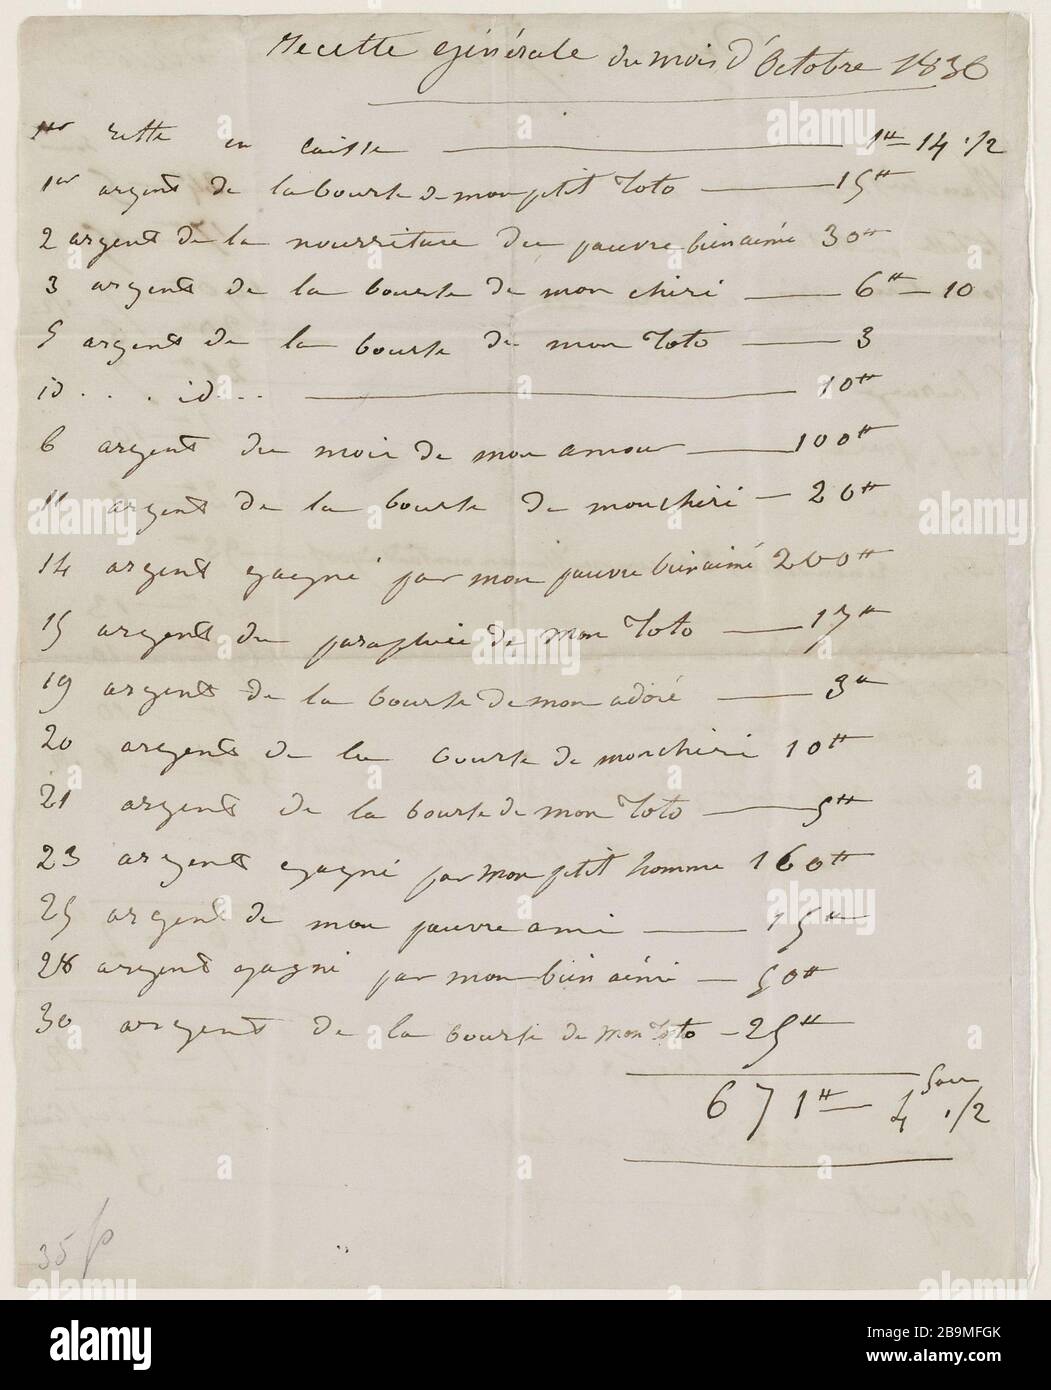 Recette générale du mois d'Octobre 1836
1er reste en caisse — 1# — 14 . 1/2
1er argent de la bourse de mon petit Toto — 15#
2 argent de la nourriture du pauvre bienaimé 30#
3 argent de la bourse de mon chéri — 6# — 10
5 argent de la bourse de mon Toto — 3
id . . . id . . . — 10#
6 argent du mois de mon amour — 100#
11 argent de la bourse de mon chéri — 20#
14 argent gagné par mon pauvre bienaimé 200#
15 argent du parapluie de mon Toto — 17#
19 argent de la bourse de mon adoré — 3#
20 argent de la bourse de mon chéri 10#
21 argent de la bourse de mon Toto — 5#
23 argent gagné par mon petit homme 160#
25 argent de mon pauvre ami — 15#
28 argent gagné par mon bien aimé — 50#
30 argent de la bourse de mon Toto — 25#
671# — 4 sous . 1/2
35
alamy
Image ID: 2B9MFGK
www.alamy.com